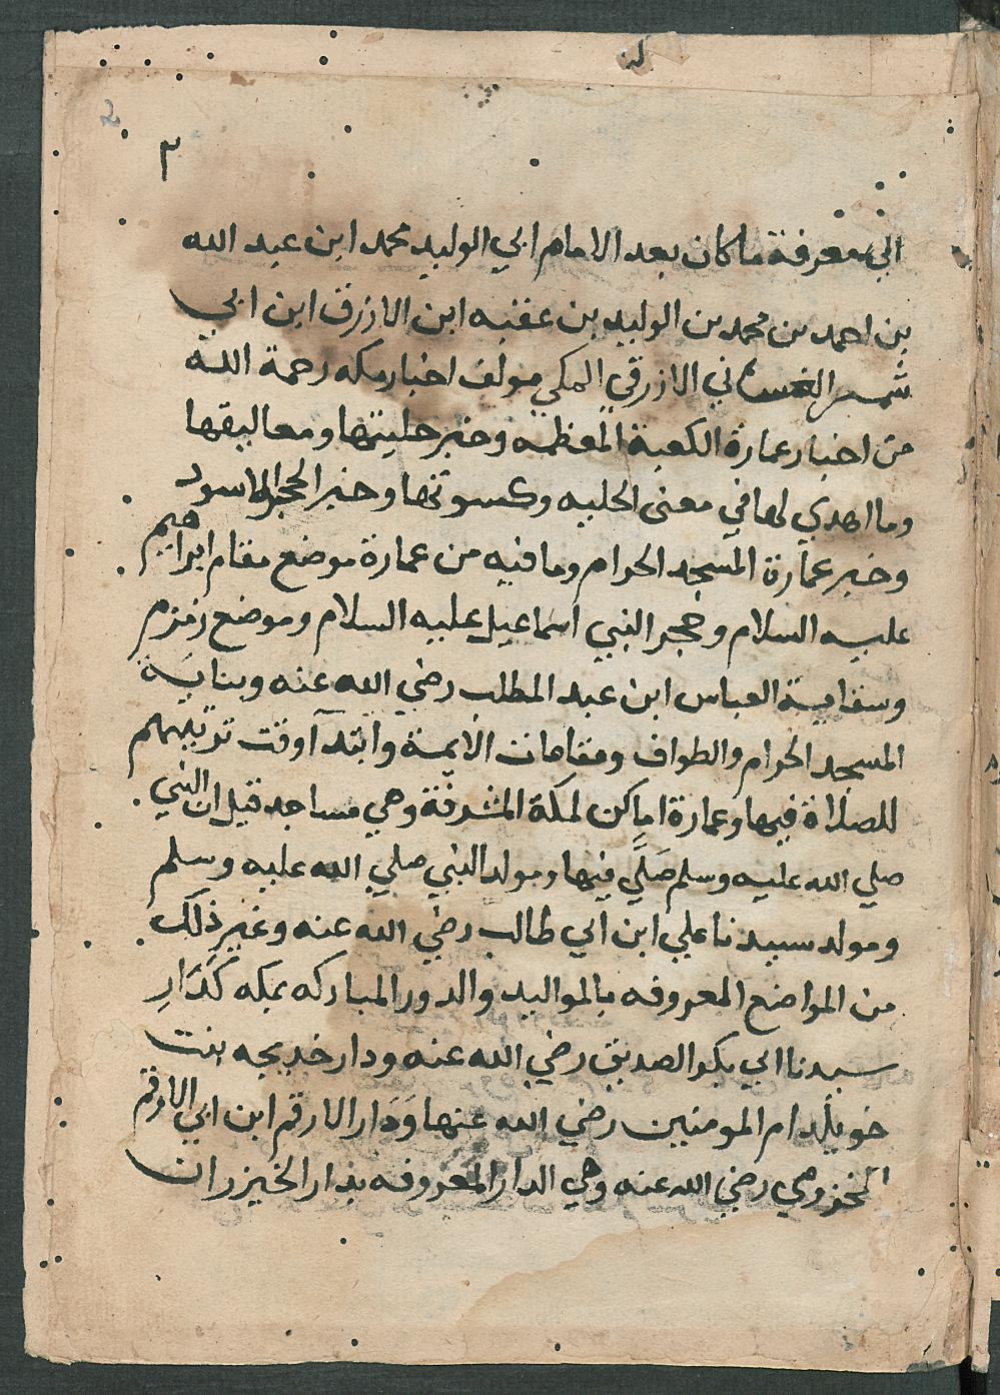 ٣
الي معرفة ماكان بعد الامام ابي الوليد محمد ابن عبد الله
بن احمد بن محمد بن الوليد بن عقبه ابن الازرق ابن ابي
شمر الغساني الازرقي المكي مولف اخبار مكه رحمة الله
من اخبار عمارة الكعبة المعظمه وخبر حليتها ومعاليقها
وما اهدي لها في معنى الحليه وكسوتها وخبر الحجر الاسود
وخبر عمارة المسجد الحرام وما فيه من عمارة موضع مقام ابراهيم
عليه السلام وحجر النبي اسماعيل عليه السلام وموضع زمزم
وسقاية العباس ابن عبد المطلب رضي الله عنه وبناية
المسجد الحرام والطواف ومقامات الايمة وابتدآ وقت ترتيبهم
للصلاة فيها وعمارة اماكن لمكة المشرفة وهي مساجد قيل ان النبي
صلي الله عليه وسلم صَلَّي فيها ومولد النبي صلي الله عليه وسلم
ومولد سيدنا علي ابن ابي طالب رضي الله عنه وغير ذلك
من المواضع المعروفه بالمواليد والدور المباركه بمكه كَدَارِ
سيدنا ابي بكر الصديق رضي الله عنه ودار خديجه بنت
خويلد ام المومنين رضي الله عنها وَدَار الارقم ابن ابي الارقم
المخزومي رضي الله عنه وهي الدار المعروفه بدار الخيزران